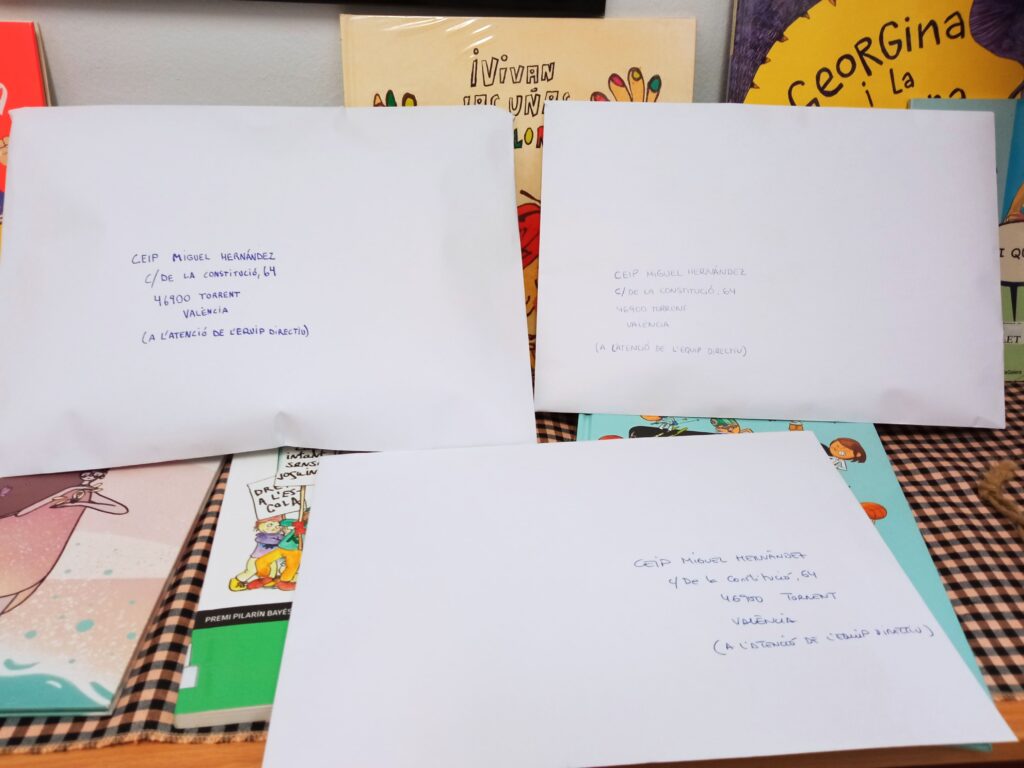 ¡VIVAN
LAS UÑAS
GEORGINA
i LA
CEIP MIGUEL HERNÁNDEZ
C/DE LA CONSTITUCIÓ, 64
46900 TORRENT
VALÈNCIA
(A L'ATENCIÓ DE L'EQUIP DIRECTIU)
CEIP MIGUEL HERNÁNDEZ
C/DE LA CONSTITUCIÓ, 64
46900 TORRENT
VALÈNCIA
(A L'ATENCIÓ DE L'EQUIP DIRECTIU)
I QU
DRE
A L'ES
COLA
PREMI PILARÍN BAYÉS
CEIP MIGUEL HERNÁNDEZ
C/De la Constitució, 64
46900 TORRENT
VALÈNCIA
(A L'ATENCIÓ DE L'EQUIP DIRECTIU)